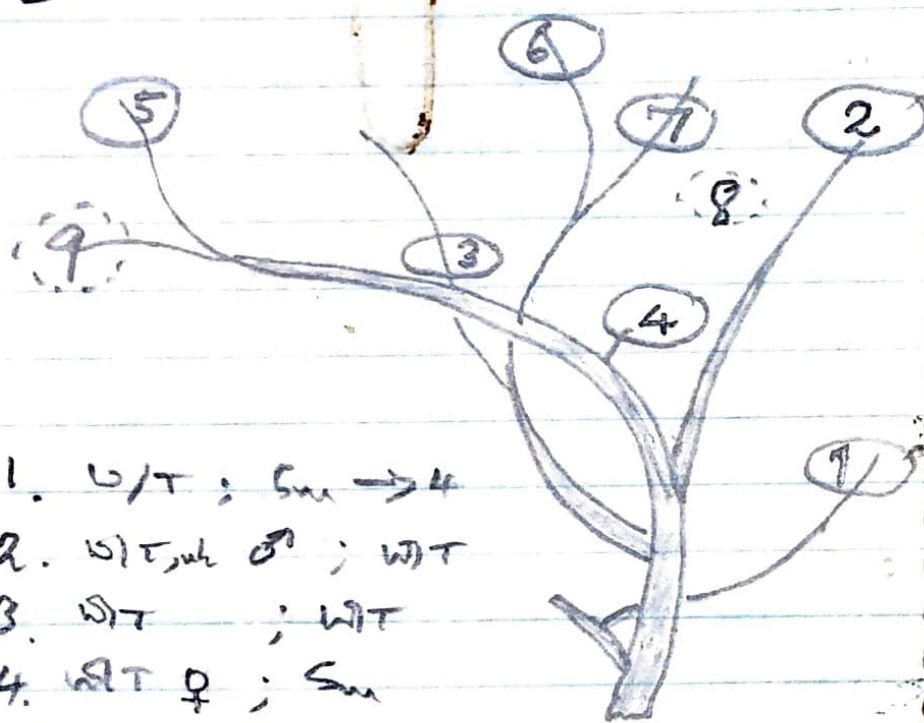 6
5
7
2
8
9
3
4
1
1. W/T ; Sm → 4
2. W/T, ♂ ; W/T
3. W/T ; W/T
4. W/T ♀ ; Sm